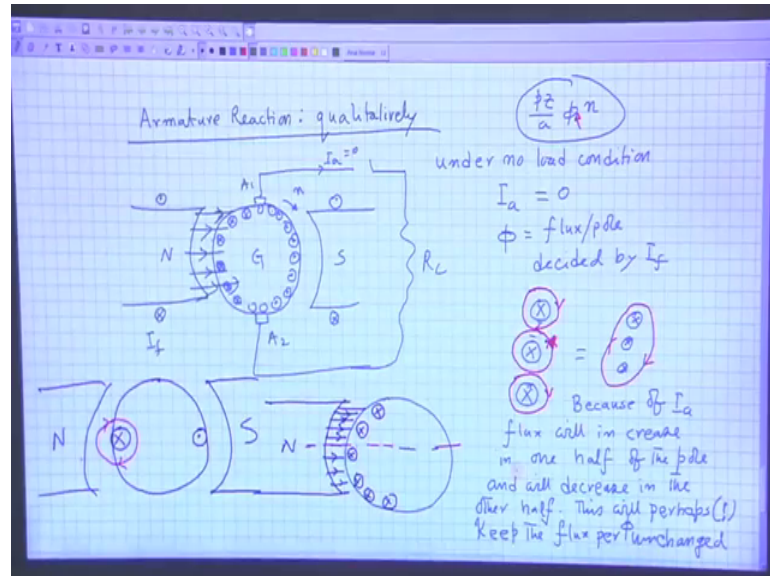 Armature Reaction: qualitatively
pz/a φ n
under no load condition
I_a = 0
φ = flux/pole
decided by I_f
A1
I_a=0
n
N
G
S
R_L
A2
I_f
N
S
N
=
Because of I_a
flux will in crease
in one half of the pole
and will decrease in the
other half. This will perhaps(!)
Keep the flux per unchanged